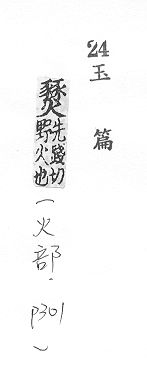 24
玉篇
燹先踐切野火也(火部·p301)